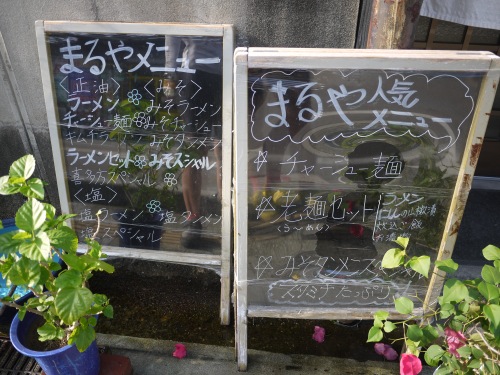 まるやメニュー
〈正油〉 〈みそ〉
ラーメン みそラーメン
チャーシュー麺 みそチャーシュー
キムチラーメン みそタンメン
ラーメンセット みそスペシャル
喜多方スペシャル
〈塩〉
塩ラーメン 塩タンメン
塩スペシャル
まるや人気
メニュー
☆ チャーシュー麺
☆ 老麺セット
(らーめん)
ラーメン
炊込ご飯
☆ みそラーメンスペシャル